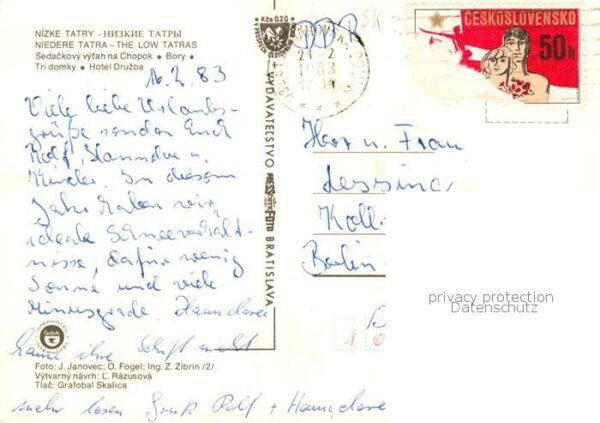 NÍZKE TATRY - НИЗКИЕ ТАТРЫ
NIEDERE TATRA - THE LOW TATRAS
Sedačkový výťah na Chopok • Bory •
Tri domky • Hotel Družba
16.2.83
Viele liebe Urlaubs-
grüße senden Euch
Rolf, Hannelore u.
Kinder. In diesem
Jahr haben wir
ideale Schneeverhält-
nisse, dafür wenig
Sonne und viele
Minusgrade. Hannelore
kann ihre Schrift nicht
Foto: J. Janovec; O. Fogel; Ing. Z. Zibrin /2/
Výtvarný návrh: Ľ. Rázusová
Tlač: Grafobal Skalica
mehr lesen Gruß Rolf + Hannelore
Kčs 0,20
VYDAVATEĽSTVO PRESSFOTO BRATISLAVA
21.2.
1983
ČESKOSLOVENSKO
50h
Herr u. Frau
Lessing
Koll
Berlin
privacy protection
Datenschutz